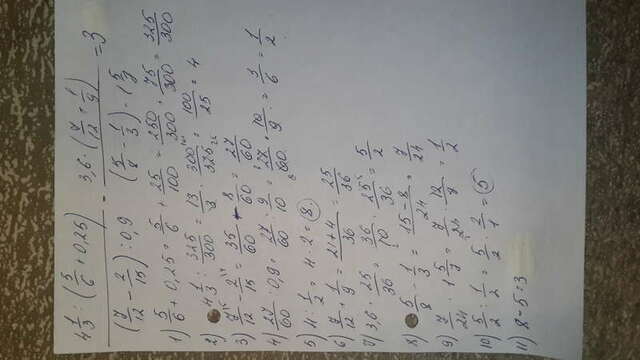 4 1/3 : (5/6 + 0,25) / (7/12 - 2/15) : 0,9 - 3,6 · (7/12 + 1/9) / (5/8 - 1/3) · 1 5/7 = 3
1) 5/6 + 0,25 = 5/6 + 25/100 = 250/300 + 75/300 = 325/300
2) 4 1/3 : 325/300 = 13/3 · 300/325 = 100/25 = 4
3) 7/12 - 2/15 = 35/60 - 8/60 = 27/60
4) 27/60 : 0,9 = 27/60 : 9/10 = 27/60 · 10/9 = 3/6 = 1/2
5) 4 : 1/2 = 4 · 2 = 8
6) 7/12 + 1/9 = 21+4/36 = 25/36
7) 3,6 · 25/36 = 36/10 · 25/36 = 5/2
8) 5/8 - 1/3 = 15-8/24 = 7/24
9) 7/24 · 1 5/7 = 7/24 · 12/7 = 1/2
10) 5/2 : 1/2 = 5/2 · 2/1 = 5
11) 8-5=3